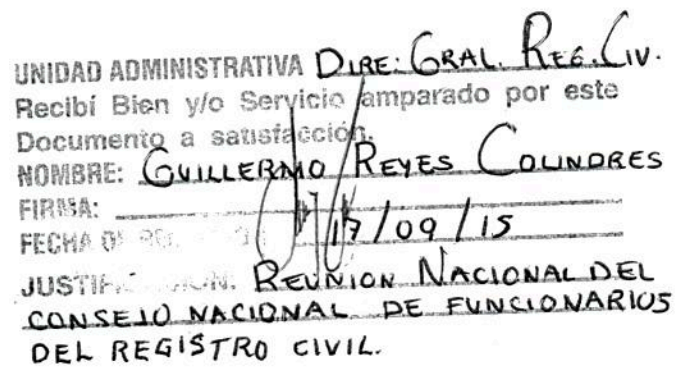 UNIDAD ADMINISTRATIVA DIRE: GRAL. REG. CIV.
Recibí Bien y/o Servicio amparado por este
Documento a satisfacción.
NOMBRE: GUILLERMO REYES COLINDRES
FIRMA:
FECHA 17/09/15
REUNION NACIONAL DEL
CONSEJO NACIONAL DE FUNCIONARIOS
DEL REGISTRO CIVIL.